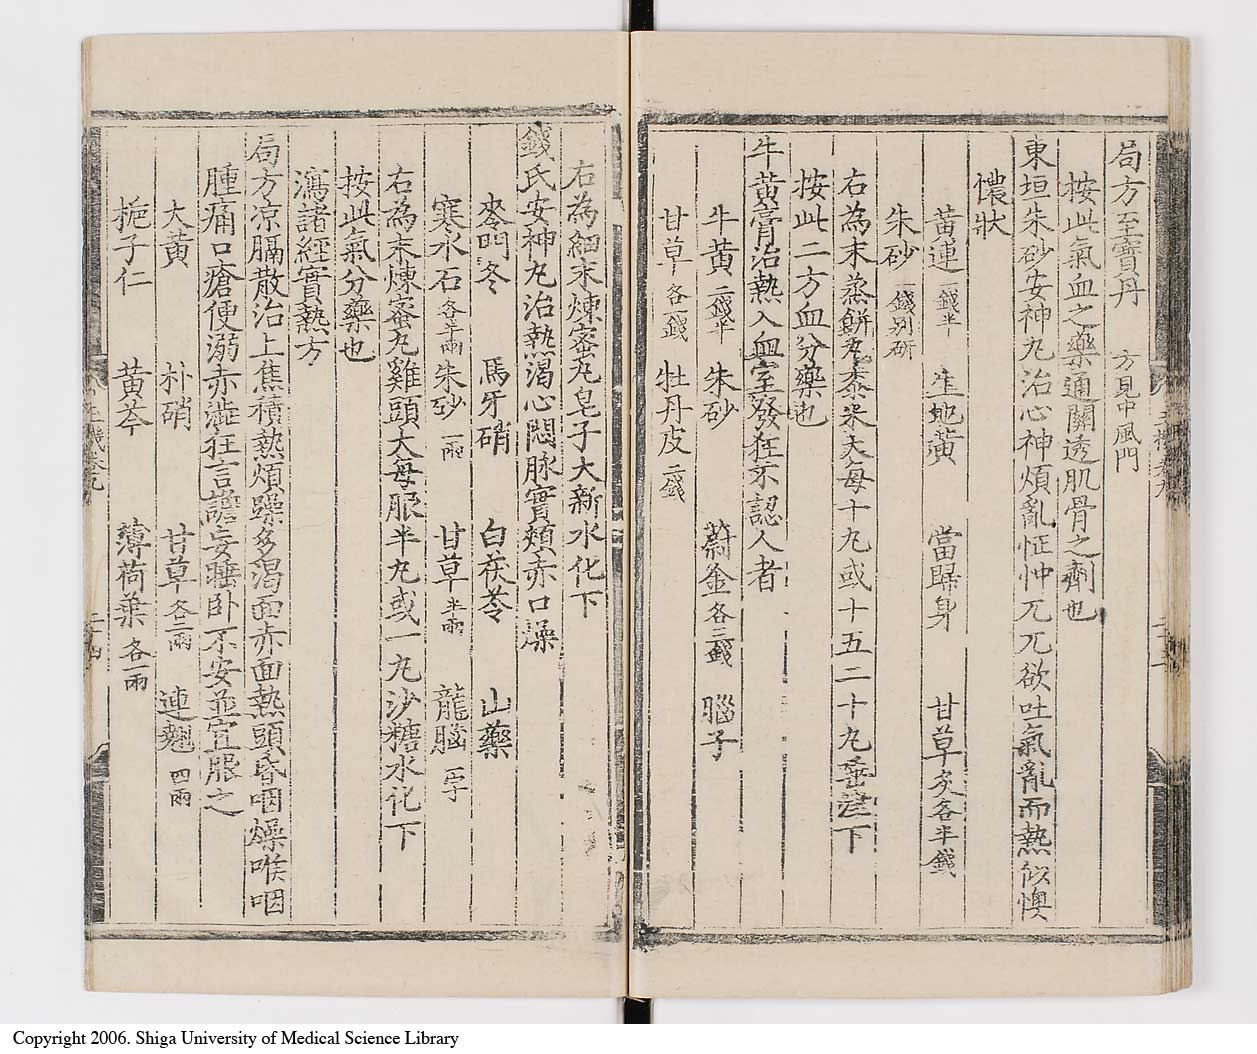 局方至寶丹 方見中風門
按此氣血之藥通關透肌骨之劑也
東垣朱砂安神丸治心神煩亂怔忡兀兀欲吐氣亂而熱似懊
憹狀
黃連一錢半 生地黃 當歸身 甘草炙各半錢
朱砂一錢別研
右為末蒸餅丸黍米大每十丸或十五二十丸唾津下
按此二方血分藥也
牛黃膏治熱入血室發狂不認人者
牛黃二錢半 朱砂 蔚金各三錢 腦子
甘草各一錢 牡丹皮二錢
右為細末煉蜜丸皂子大新水化下
錢氏安神丸治熱渴心悶脉實頰赤口燥
麥門冬 馬牙硝 白茯苓 山藥
寒水石各半兩 朱砂一兩 甘草半兩 龍腦一字
右為末煉蜜丸雞頭大每服半丸或一丸沙糖水化下
按此氣分藥也
瀉諸經實熱方
局方凉膈散治上焦積熱煩躁多渴面赤面熱頭昏咽燥喉咽
腫痛口瘡便溺赤澁狂言譫妄睡卧不安並宜服之
大黃 朴硝 甘草各二兩 連翹四兩
梔子仁 黃芩 薄荷葉各一兩
Copyright 2006. Shiga University of Medical Science Library